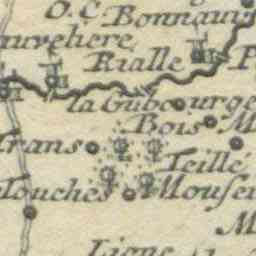 O. C
Bonnauv
auvehere
Rialle
la Gubourge
Bois M
Trans
Teillé
Touches
Mousei
M
Ligne